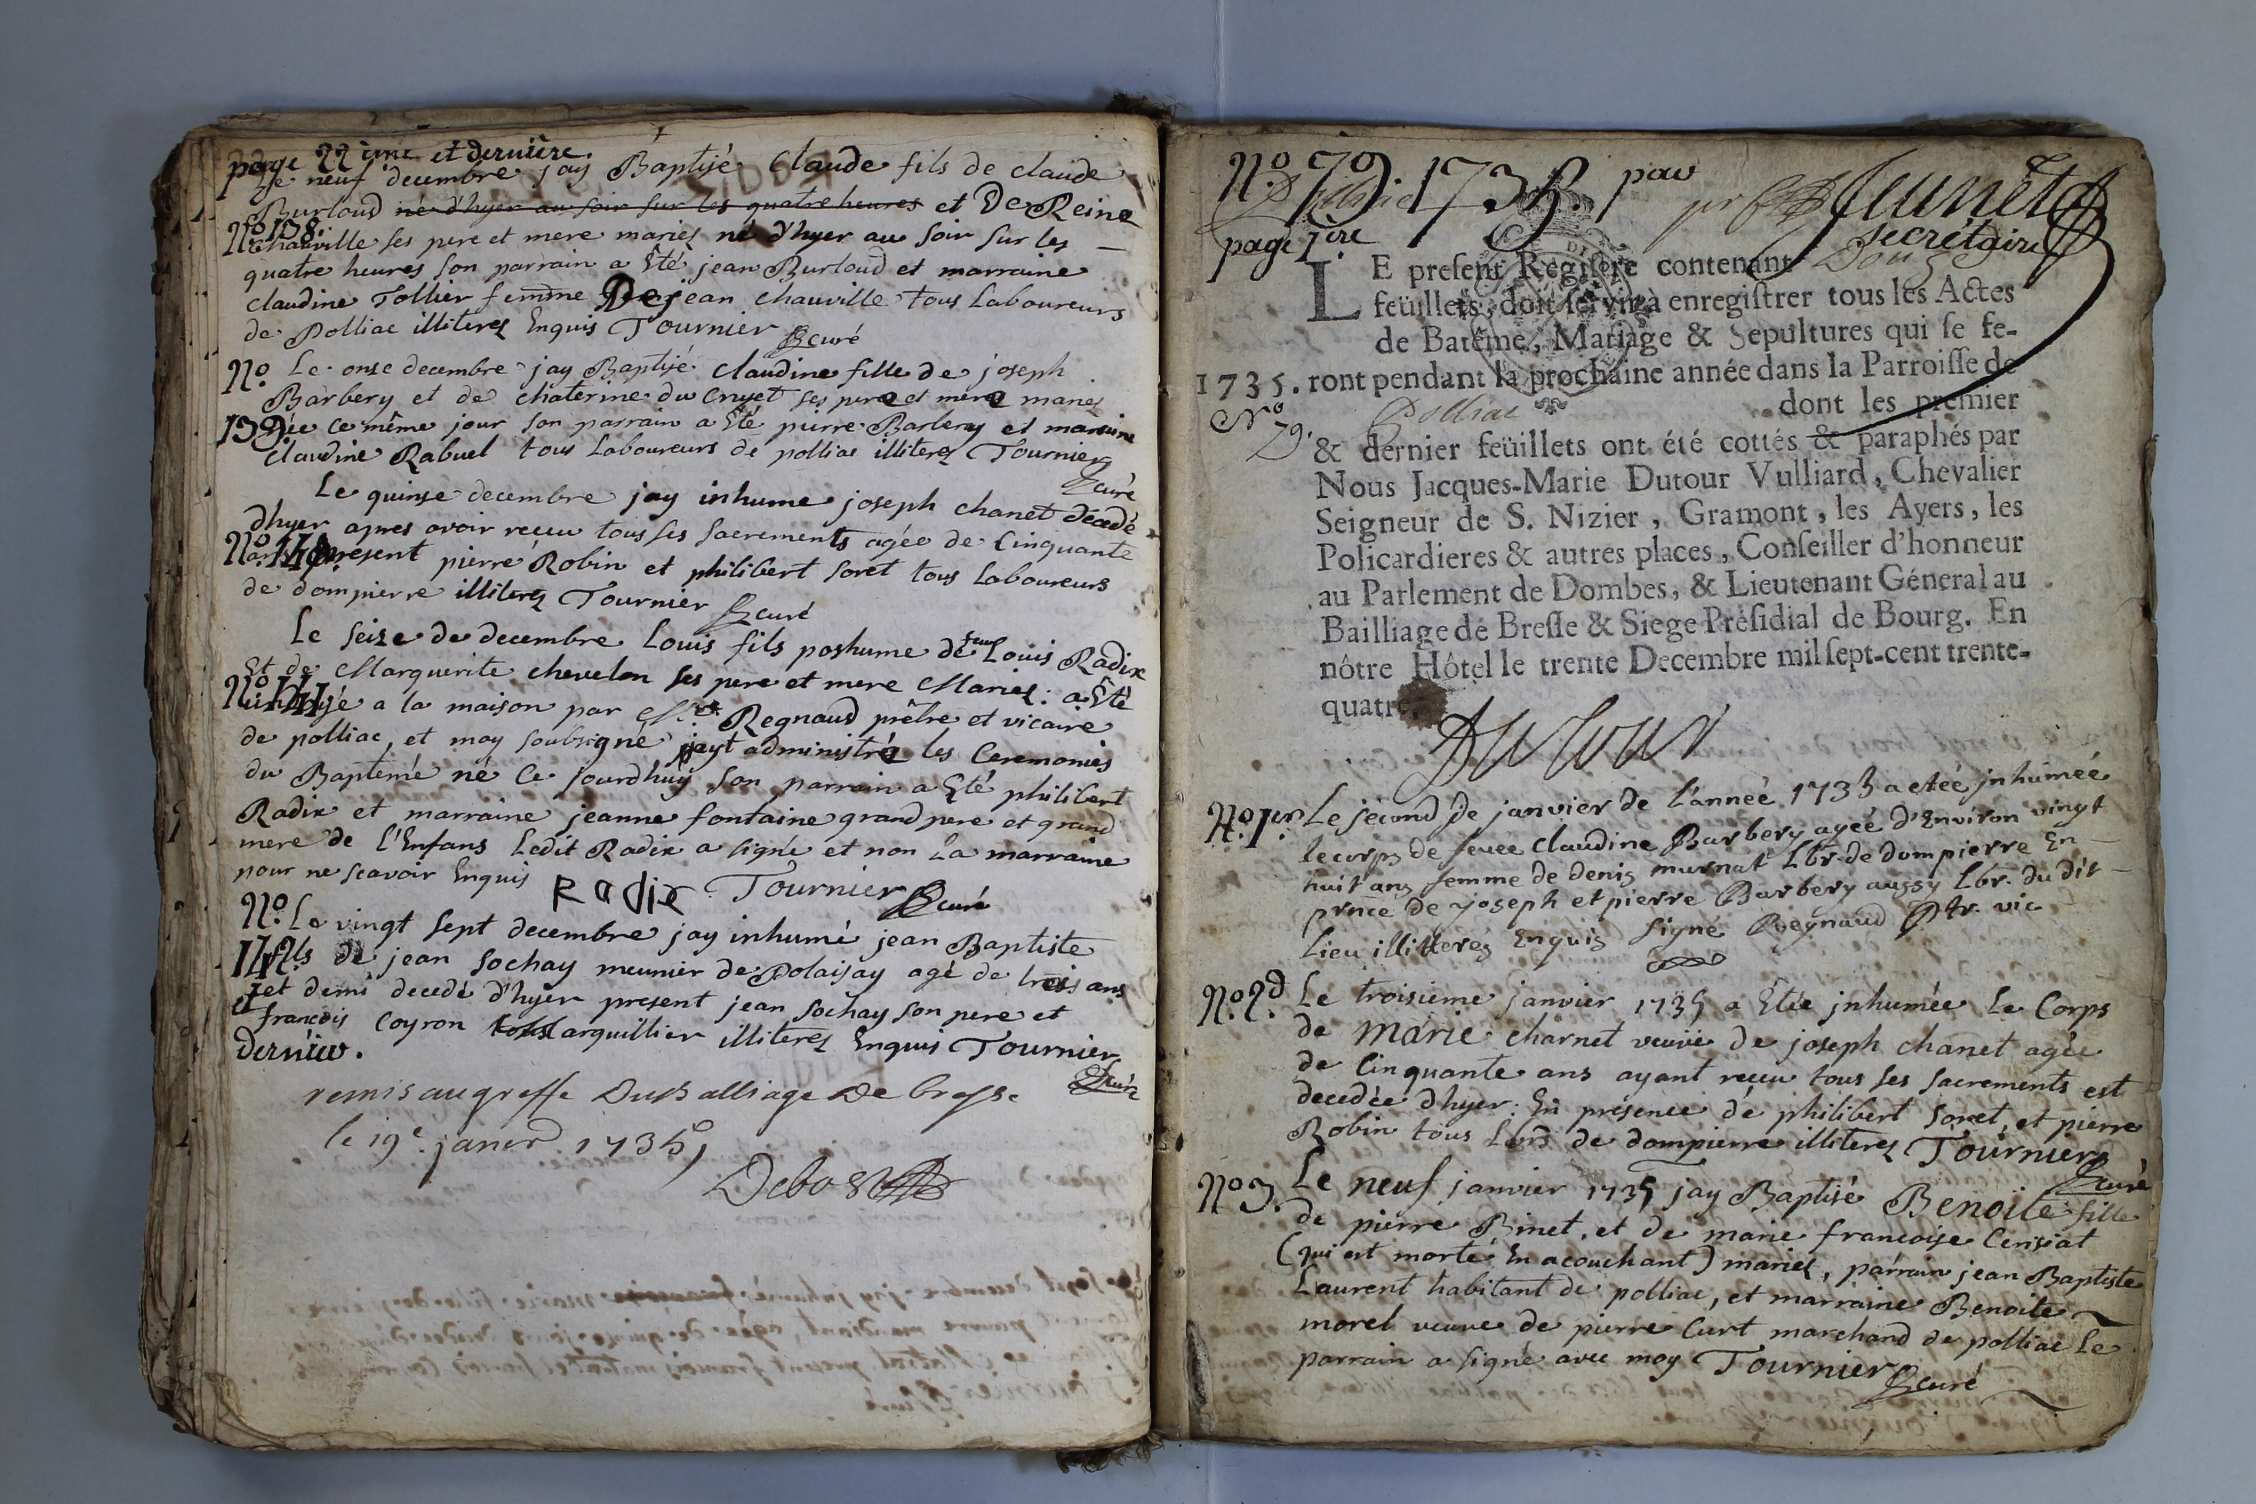 page 22 ème et dernière.
Le neuf decembre jay Baptisé Claude fils de claude
Burloud né d'hyer au soir sur les quatre heures et De Reine
No 138.
chauville ses pere et mere mariez né d'hyer au soir sur les
quatre heures son parrain a Eté jean Burloud et marraine
claudine Tollier femme De jean chauville tous Laboureurs
de Polliac illiterez Enquis Tournier curé
No. Le onse decembre jay Baptisé claudine fille de joseph
Barbery et de chaterine du Cruyet ses pere et mere mariez
139. née ce même jour son parrain a Eté pierre Barbery et marraine
claudine Rabuel tous Laboureurs de polliac illiterez Tournier
curé
Le quinse decembre jay inhume joseph chanet décedé
dhyer apres avoir reçeu tous ses sacrements agée de Cinquante
No. 140. ans present pierre Robin et philibert soret tous Laboureurs
de dompierre illiterez Tournier curé
Le seize de decembre Louis fils poshume de feu Louis Radix
Et de Marguerite chevelon ses pere et mere Mariez : a Eté
No. 141
a la maison par Regnaud prêtre et vicaire
de polliac, et moy soubsigné jayt administré les Ceremonies
du Baptemé né Ce jourdhuy son parrain a Eté philibert
Radix et marraine jeanne fontaine grand pere et grand
mere de l'Enfans Ledit Radix a signé et non La marraine
pour ne scavoir Enquis Radix Tournier curé
No. Le vingt sept decembre jay inhumé jean Baptiste
142. fils de jean sochay meunier de Polaisay agé de trois ans
et et demi decedé d'hyer present jean sochay son pere et
francois Coyron arquillier illiterez Enquis Tournier
dernier.
curé
remis au greffe Du Balliage De bresse
le 19e. janer 1735,
Debost
No. 79. 1735. par Jeunet
secrétaire
page 1ère
Douze
LE present Registre contenant
feüillets, doit servir à enregistrer tous les Actes
de Batême, Mariage & Sepultures qui se fe-
1735. ront pendant la prochaine année dans la Parroisse de
No 79. Polliac dont les premier
& dernier feüillets ont été cottés & paraphés par
Nous Jacques-Marie Dutour Vulliard, Chevalier
Seigneur de S. Nizier, Gramont, les Ayers, les
Policardieres & autres places, Conseiller d'honneur
au Parlement de Dombes, & Lieutenant Géneral au
Bailliage de Bresse & Siege Présidial de Bourg. En
nôtre Hôtel le trente Decembre mil sept-cent trente-
quatre.
Dutour
No. 1er. Le second de janvier de l'année 1735 a etée jnhumée
le corps de feuee Claudine Barbery agéé d'Environ vingt
huit ans femme de denis murnat Lbr. de dompierre En
prnce de joseph et pierre Barbery aussy Lbr. du dit
Lieu illitterez Enquis signé Regnaud Ptr. vic
No. 2d. Le troisieme janvier 1735 a Etée jnhumée Le Corps
de Marie charnet veuve de joseph chanet agée
de Cinquante ans ayant reçeu tous ses sacrements est
decedée dhyer. En présence de philibert soret, et pierre
Robin tous Lbrs de dompierre illiterez Tournier
curé
No 3. Le neuf janvier 1735 jay Baptisé Benoite fille
de pierre Binet, et de marie francoise Cerisiat
(qui est morte En acouchant) mariez, parrain jean Baptiste
Laurent habitant de polliac, et marraine Benoite
morel veuve de pierre Curt marchand de polliac Le
parrain a signé avec moy Tournier curé